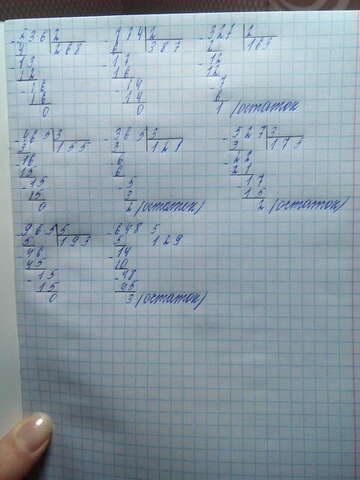 -536|2 -774|2 -327|2
4 268 6 387 2 163
-13 -17 -12
12 16 12
-16 -14 -7
16 14 6
0 0 1 (остаток
-465|3 -365|3 -527|3
3 155 3 121 3 175
-16 -6 -22
15 6 21
-15 -5 -17
15 3 15
0 2 (остаток) 2 (остаток)
-965|5 -648 5
5 193 5 129
-46 -14
45 10
-15 -48
15 45
0 3 (остаток)